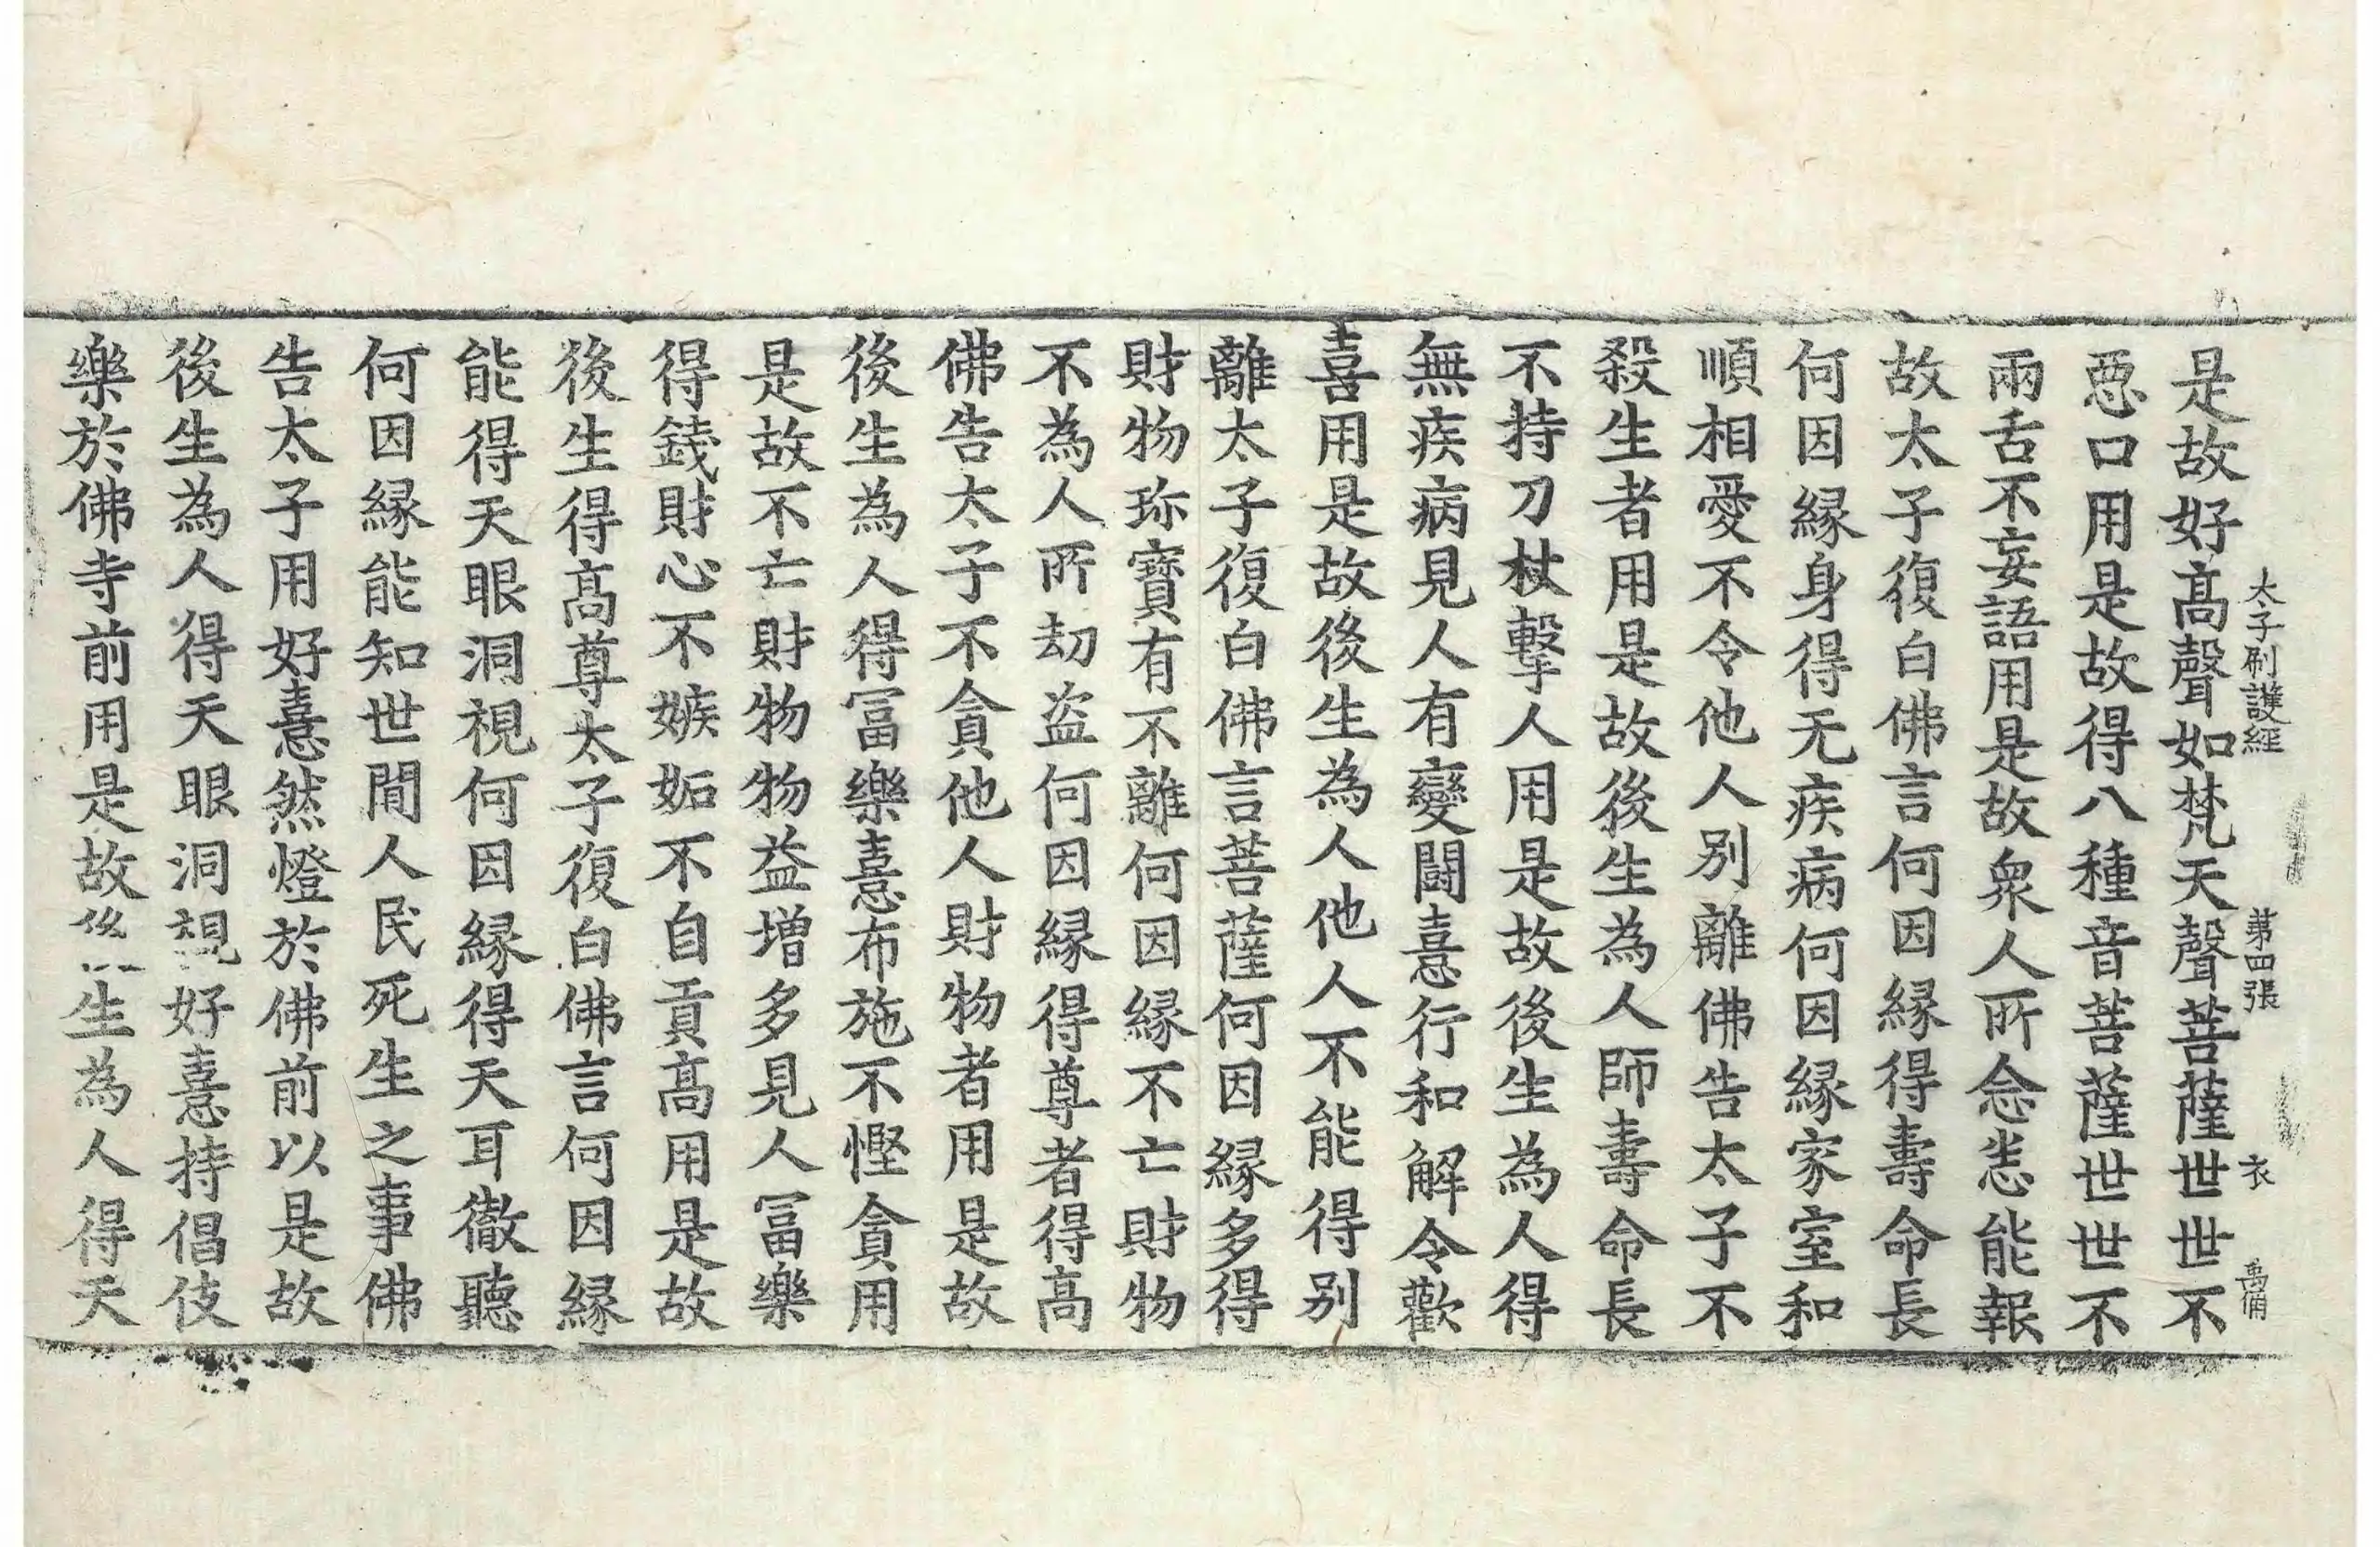 太子刷護經　第四張　衣　禹備
是故好高聲如梵天聲菩薩世世不
惡口用是故得八種音菩薩世世不
兩舌不妄語用是故衆人所念恙能報
故太子復白佛言何因縁得壽命長
何因縁身得无疾病何因縁家室和
順相愛不令他人别離佛告太子不
殺生者用是故後生為人師壽命長
不持刀杖擊人用是故後生為人得
無疾病見人有變鬪憙行和解令歡
喜用是故後生為人他人不能得别
離太子復白佛言菩薩何因縁多得
財物珎寶有不離何因縁不亡財物
不為人所劫盗何因縁得尊者得高
佛告太子不貪他人財物者用是故
後生為人得冨樂憙布施不慳貪用
是故不亡財物物益增多見人冨樂
得錢財心不嫉妬不自貢高用是故
後生得高尊太子復白佛言何因縁
能得天眼洞視何因縁得天耳徹聽
何因縁能知世間人民死生之事佛
告太子用好憙然燈於佛前以是故
後生為人得天眼洞視好憙持倡伎
樂於佛寺前用是故後生為人得天